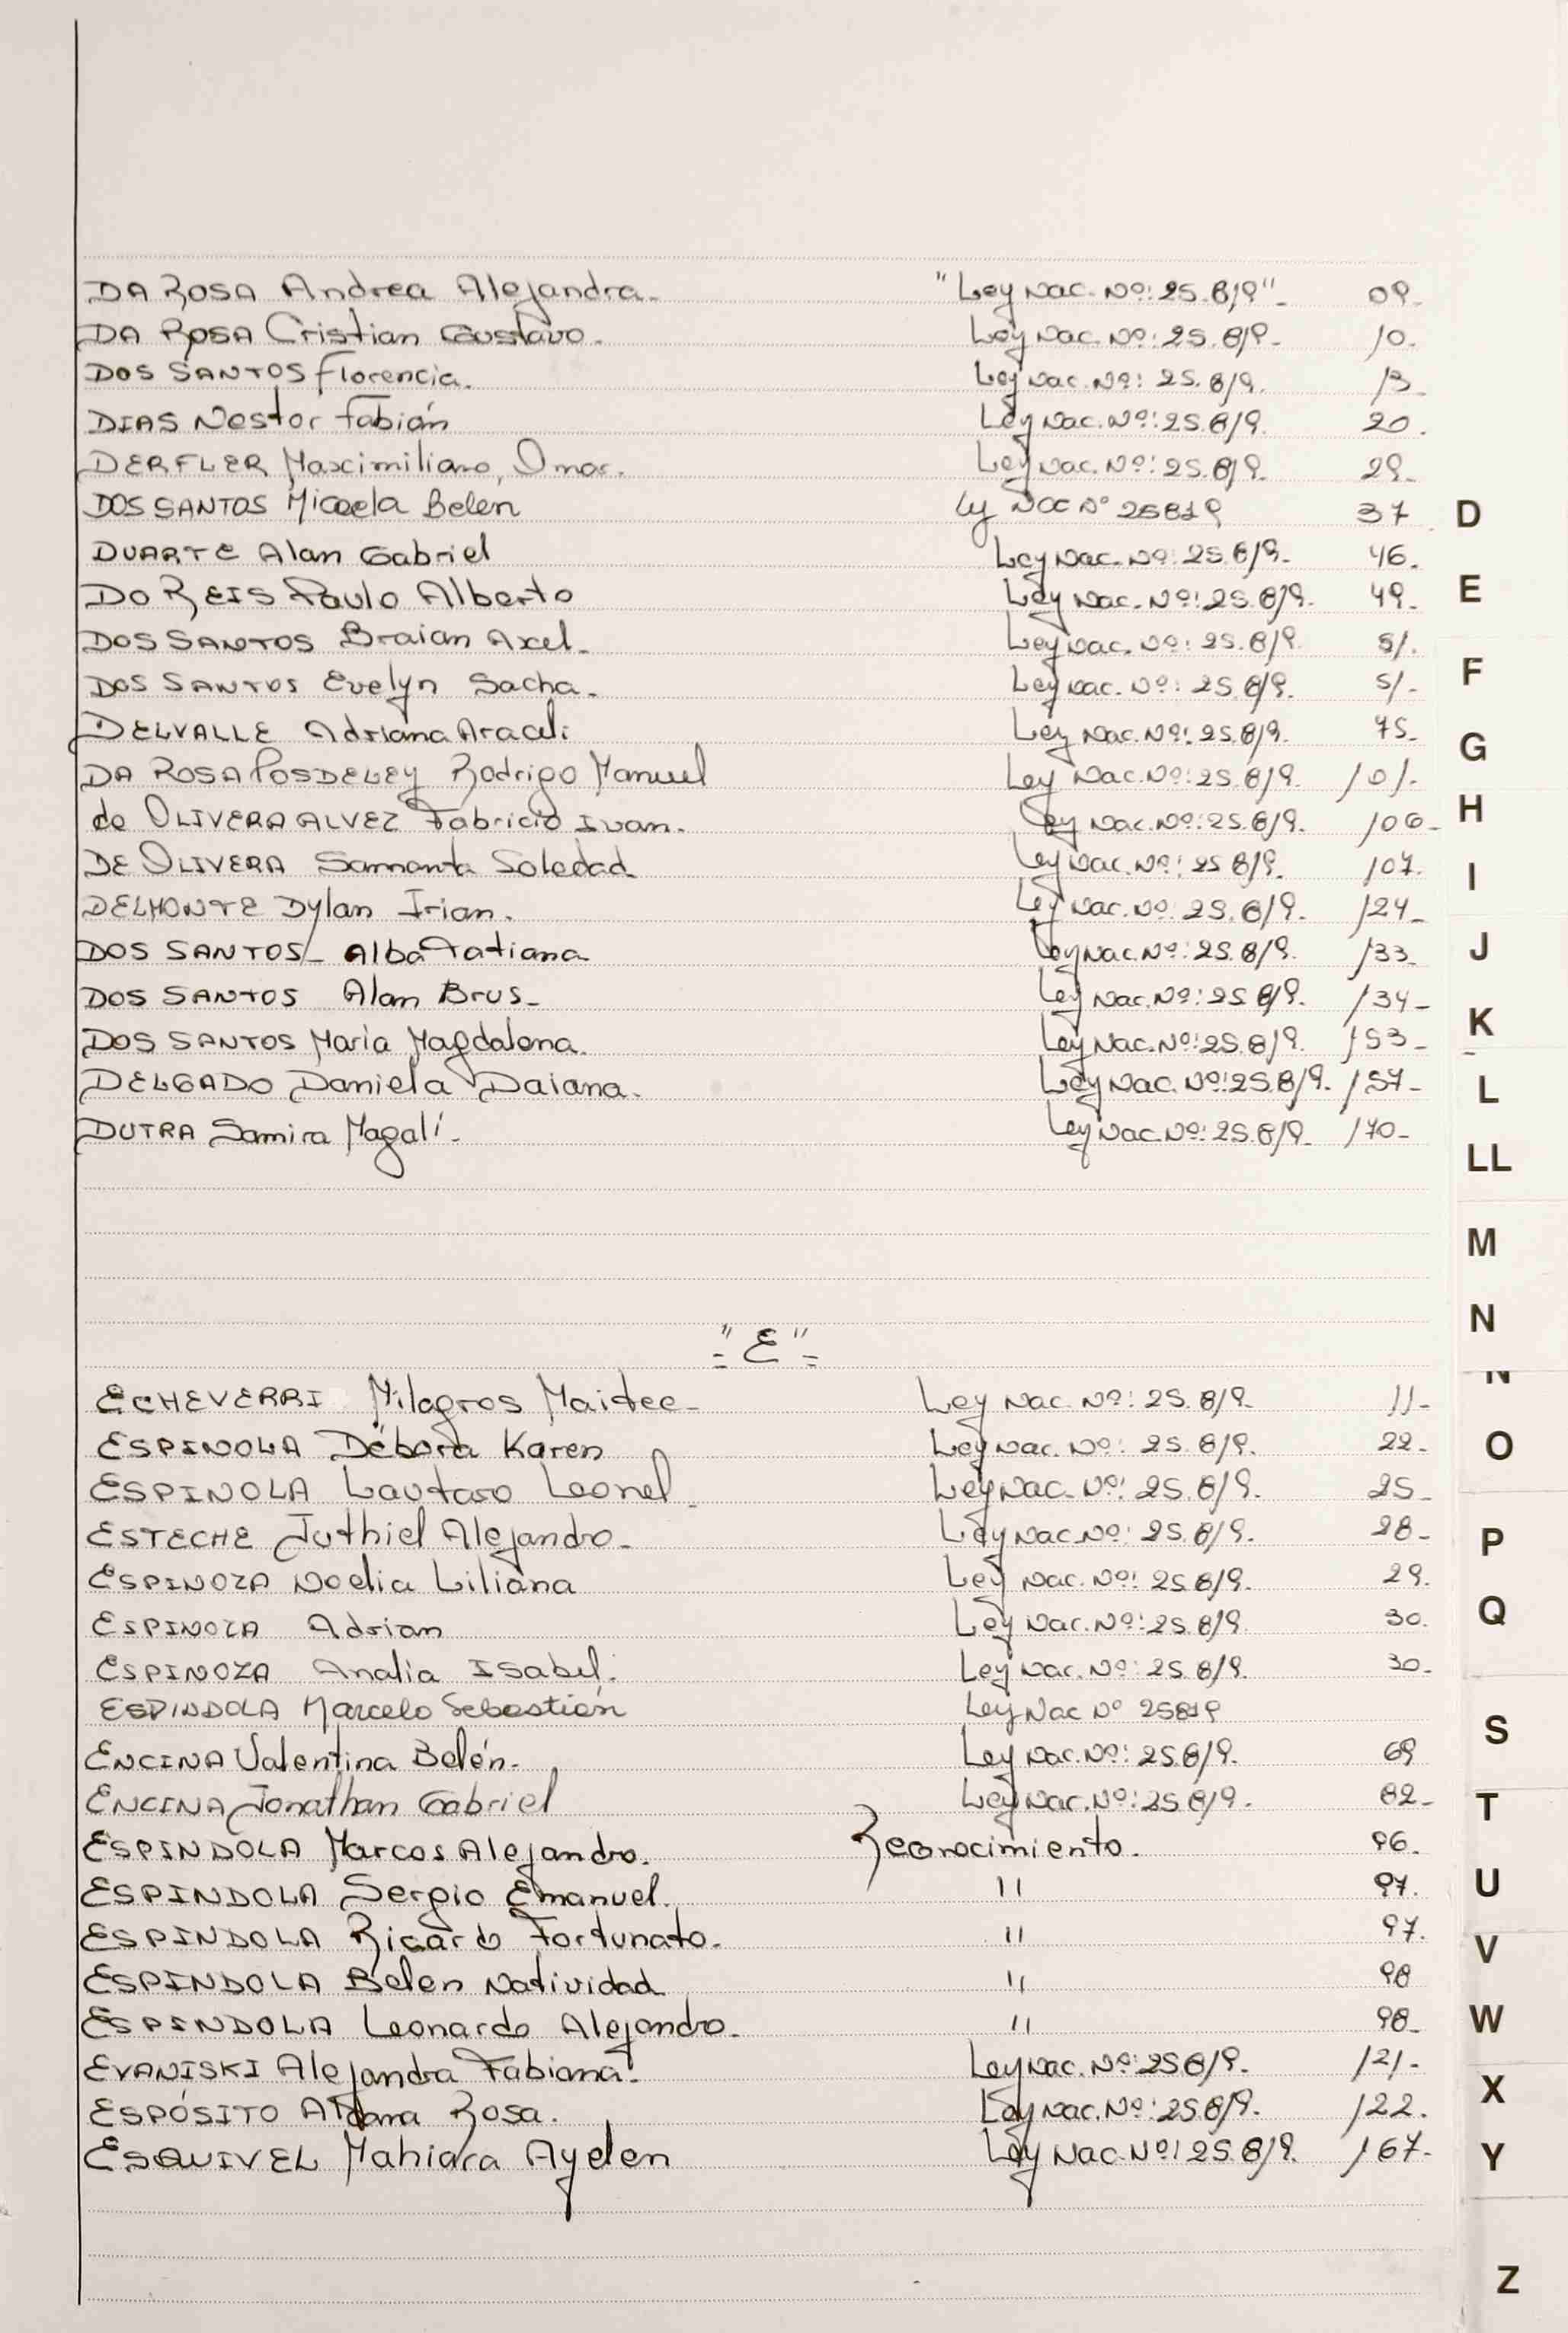 DA ROSA Andrea Alejandra. "Ley Nac. Nº: 25.819". 09.
DA ROSA Cristian Gustavo. Ley Nac. Nº: 25.819. 10.
DOS SANTOS Florencia. Ley Nac. Nº: 25.819. 13.
DIAS Nestor Fabián Ley Nac. Nº: 25.819. 20.
DERFLER Maximiliano, Omar. Ley Nac. Nº: 25.819. 29.
DOS SANTOS Micaela Belen Ley Nac Nº 25819 37
DUARTE Alan Gabriel Ley Nac. Nº: 25.819. 46.
DO REIS Paulo Alberto Ley Nac. Nº: 25.819. 49.
DOS SANTOS Braian Axel. Ley Nac. Nº: 25.819. 51.
DOS SANTOS Evelyn Sacha. Ley Nac. Nº: 25.819. 51.
DELVALLE Adriana Araceli Ley Nac. Nº: 25.819. 75.
DA ROSA POSDELEY Rodrigo Manuel Ley Nac. Nº: 25.819. 101.
de OLIVERA ALVEZ Fabricio Ivan. Ley Nac. Nº: 25.819. 106.
DE OLIVERA Samanta Soledad Ley Nac. Nº: 25.819. 107.
DELMONTE Dylan Irian. Ley Nac. Nº: 25.819. 124.
DOS SANTOS Alba Tatiana Ley Nac. Nº: 25.819. 133.
DOS SANTOS Alan Brus. Ley Nac. Nº: 25.819. 134.
DOS SANTOS Maria Magdalena. Ley Nac. Nº: 25.819. 153.
DELGADO Daniela Daiana. Ley Nac. Nº: 25.819. 157.
DUTRA Samira Magalí. Ley Nac. Nº: 25.819. 170.
"E"
ECHEVERRI Milagros Maitee. Ley Nac. Nº: 25.819. 11.
ESPINOLA Débora Karen Ley Nac. Nº: 25.819. 22.
ESPINOLA Lautaro Leonel. Ley Nac. Nº: 25.819. 25.
ESTECHE Juthiel Alejandro. Ley Nac. Nº: 25.819. 28.
ESPINOZA Noelia Liliana Ley Nac. Nº: 25.819. 29.
ESPINOZA Adrian Ley Nac. Nº: 25.819. 30.
ESPINOZA Analía Isabel. Ley Nac. Nº: 25.819. 30.
ESPINDOLA Marcelo Sebastián Ley Nac Nº 25819
ENCINA Valentina Belén. Ley Nac. Nº: 25.819. 69
ENCINA Jonathan Gabriel Ley Nac. Nº: 25.819. 82.
ESPINDOLA Marcos Alejandro. Reconocimiento. 96.
ESPINDOLA Sergio Emanuel. " 97.
ESPINDOLA Ricardo Fortunato. " 97.
ESPINDOLA Belen Natividad " 98
ESPINDOLA Leonardo Alejandro. " 98.
EVANISKI Alejandra Fabiana. Ley Nac. Nº: 25.819. 121.
ESPÓSITO Aldana Rosa. Ley Nac. Nº: 25.819. 122.
ESQUIVEL Mahiara Ayelen Ley Nac. Nº: 25.819. 167.
D
E
F
G
H
I
J
K
L
LL
M
N
O
P
Q
S
T
U
V
W
X
Y
Z